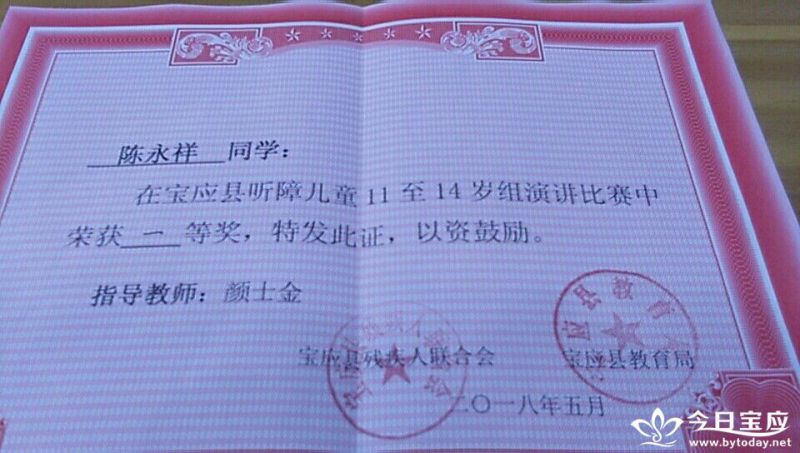 陈永祥 同学：
在宝应县听障儿童11至14岁组演讲比赛中
荣获 一 等奖，特发此证，以资鼓励。
指导教师：颜士金
宝应县残疾人联合会 宝应县教育局
二〇一八年五月
今日宝应
www.bytoday.net